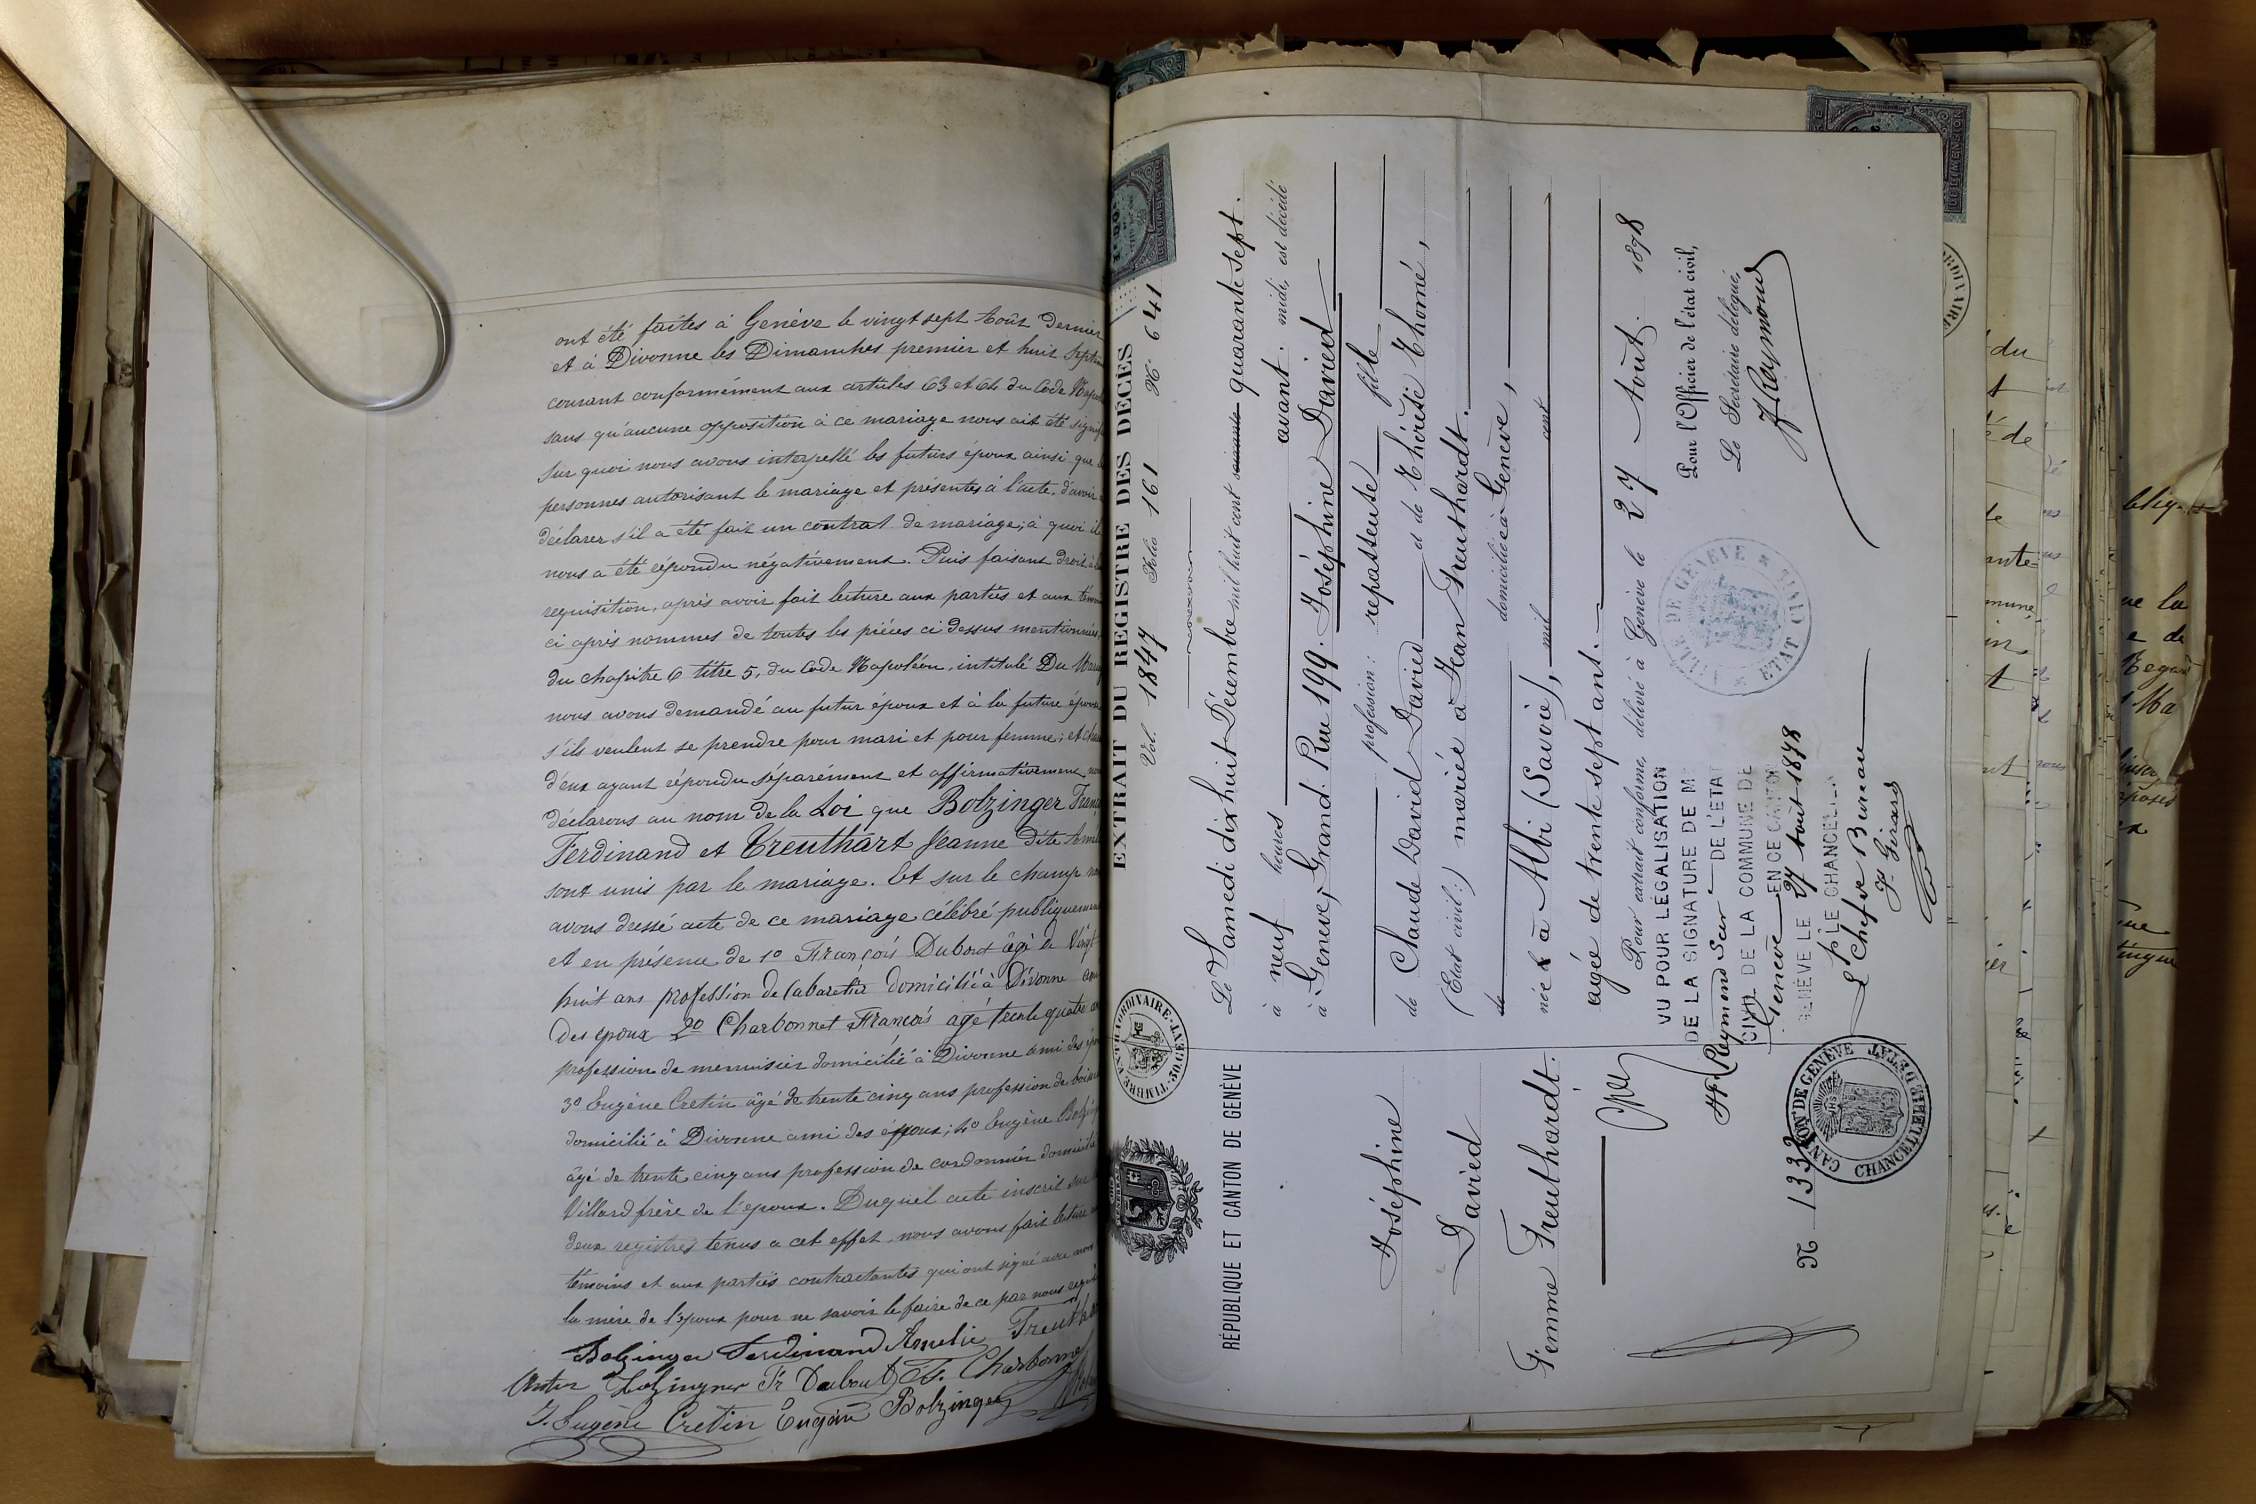 ont été faites à Genève le vingt sept Août dernier
et à Divonne les Dimanches premier et huit
courant conformément aux articles 63 et 64 du Code
sans qu'aucune opposition à ce mariage nous ait été
Sur quoi nous avons interpellé les futurs époux ainsi que
personnes autorisant le mariage et présentes à l'acte, d'avoir
déclarer s'il a été fait un contrat de mariage; à quoi il
nous a été répondu négativement. Puis faisant droit à
requisition, après avoir fait lecture aux parties et aux
ci après nommés de toutes les pièces ci dessus mentionnées
du chapitre 6 titre 5, du Code Napoléon, intitulé Du
nous avons demandé au futur époux et à la future
s'ils veulent se prendre pour mari et pour femme; et
d'eux ayant répondu séparément et affirmativement
déclarons au nom de la Loi que Bolzinger
Ferdinand et Treuthart Jeanne dite
sont unis par le mariage. Et sur le champ
avons dressé acte de ce mariage célébré publiquement
et en présence de 1º François Dubout âgé de Vingt
huit ans profession de Cabaretier domicilié à Divonne ami
des époux 2º Charbonnet François âgé trente quatre
profession de menuisier domicilié à Divonne ami des
3º Eugène Cretin âgé de trente cinq ans profession de
domicilié à Divonne ami des époux; 4º Eugène
âgé de trente cinq ans profession de cordonnier domicilié
Villard frère de l'époux. Duquel acte inscrit sur
deux registres tenus a cet effet, nous avons fait lecture
témoins et aux parties contractantes qui ont signé avec nous
la mère de l'époux pour ne savoir le faire de ce par nous
Bolzinger Ferdinand Amelie
Bolzinger Fr Dubout F. Charbonnet
J. Eugène Cretin Eugène Bolzinger
RÉPUBLIQUE ET CANTON DE GENÈVE
TIMBRE EXTRAORDINAIRE. 50 GENT.
EXTRAIT DU REGISTRE DES DÉCÈS
Vol. 1847 Folio 161 Nº 641
Joséphine
David
Femme Treuthardt.
Le Samedi dix huit Décembre mil huit cent quarante sept.
à neuf heures avant. midi, est décédé
à Genève, Grand. Rue 199. Joséphine David
profession: repasseuse fille
de Claude David David et de Thérèse Thomé,
(Etat civil:) mariée à Jean Treuthardt.
de domiciliée à Genève,
née à Albi (Savoie), mil cent
agée de trente sept ans.
Pour extrait conforme, délivré à Genève le 27 Août. 1878
Pour l'Officier de l'état civil,
Le Secrétaire délégué,
J. Reymond
VILLE DE GENÈVE
ETAT CIVIL
VU POUR LÉGALISATION
DE LA SIGNATURE DE M
Reymond Secr DE L'ÉTAT
CIVIL DE LA COMMUNE DE
Genève EN CE CANTON
GENÈVE LE 27 Août 1878
Pr LE CHANCELIER
Le Chef de Bureau
Girard
Nº 1332
CANTON DE GENÈVE
CHANCELLERIE D'ETAT